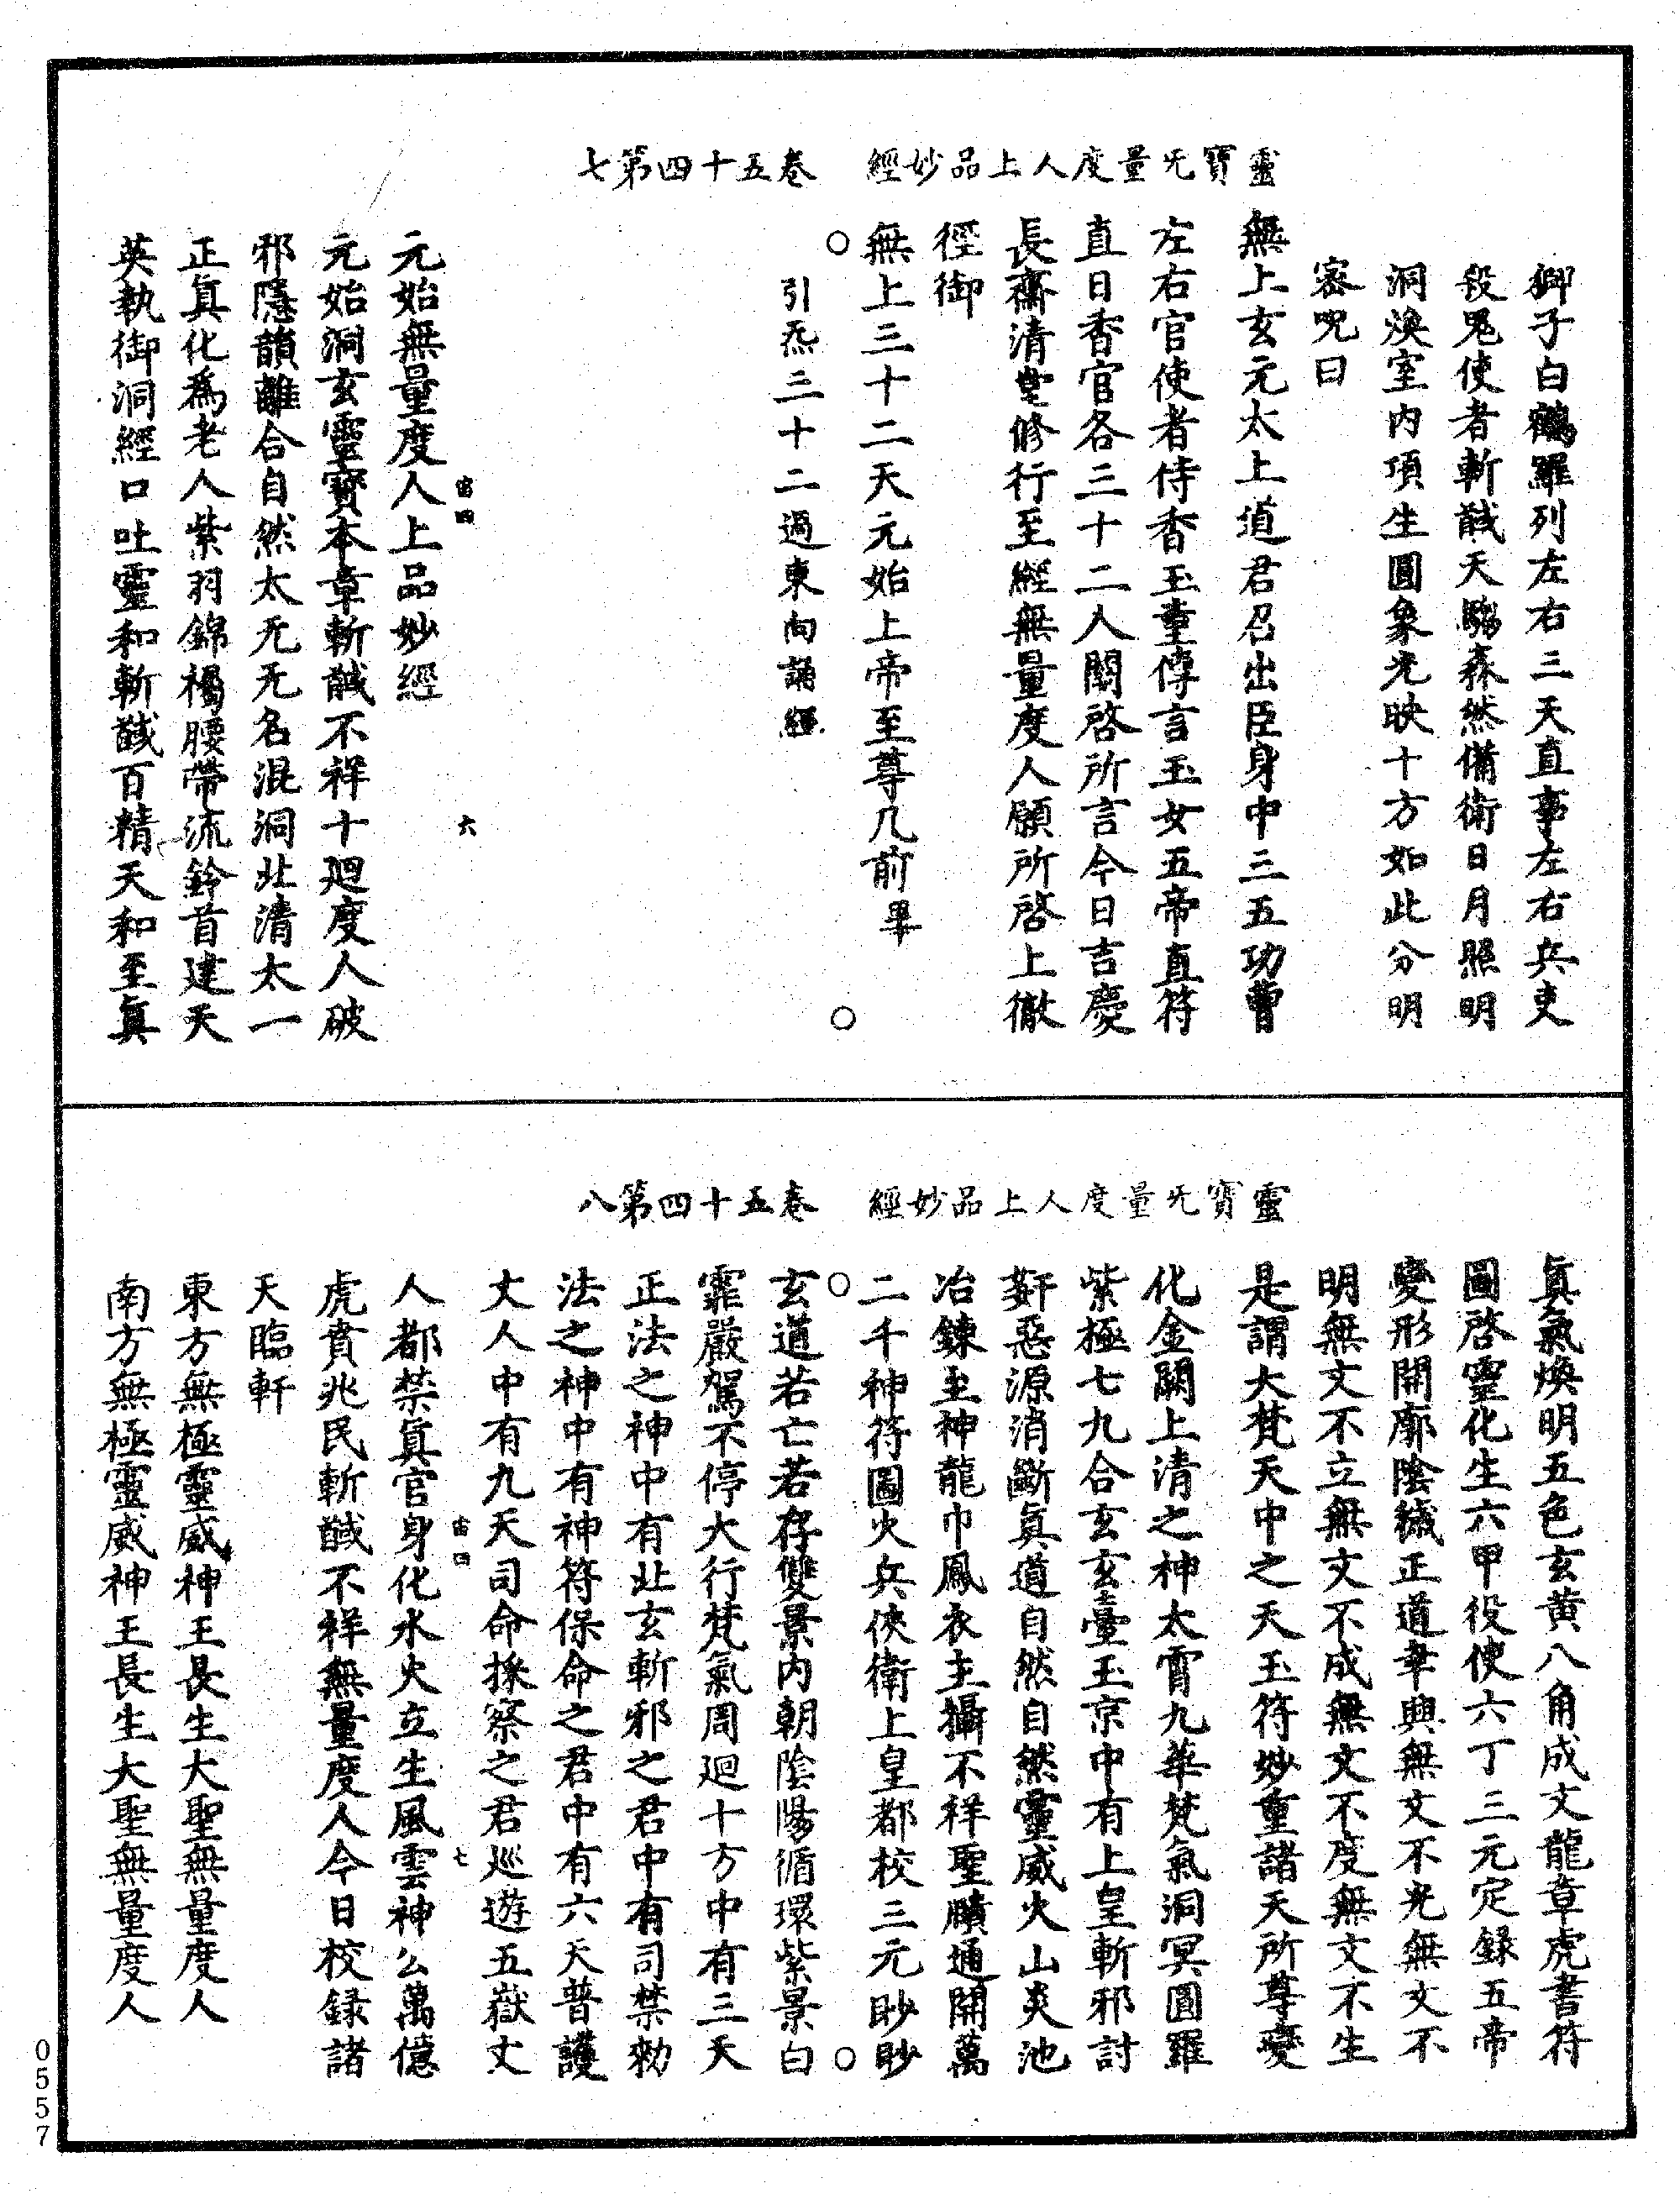 靈寶无量度人上品妙經　卷五十四第七
獅子白鶴羅列左右三天直事左右兵吏
殺鬼使者斬馘天騶森然備衛日月照明
洞煥室内項生圓象光映十方如此分明
密呪曰
無上玄元太上道君召出臣身中三五功曹
左右官使者侍香玉童傳言玉女五帝直符
直日香官各三十二人關啓所言今日吉慶
長齋清堂修行至經無量度人願所啓上徹
徑御
無上三十二天元始上帝至尊几前畢
引炁三十二過東向誦經
元始無量度人上品妙經
宙四　六
元始洞玄靈寶本章斬馘不祥十廻度人破
邪隱韻離合自然太无无名混洞北清太一
正真化爲老人紫羽錦襡腰帶流鈴首建天
英執御洞經口吐靈和斬馘百精天和至真
靈寶无量度人上品妙經　卷五十四第八
真氣煥明五色玄黄八角成文龍章虎書符
圖啓靈化生六甲役使六丁三元定錄五帝
變形開廓陰穢正道聿興無文不光無文不
明無文不立無文不成無文不度無文不生
是謂大梵天中之天玉符妙重諸天所尊變
化金闕上清之神太霄九華梵氣洞冥圓羅
紫極七九合玄玄臺玉京中有上皇斬邪討
奸惡源消斷真道自然自然靈威火山炎池
冶鍊至神龍巾鳳衣主攝不祥聖牘通開萬
二千神符圖火兵俠衛上皇都校三元眇眇
玄道若亡若存雙景内朝陰陽循環紫景白
霏嚴駕不停大行梵氣周迴十方中有三天
正法之神中有北玄斬邪之君中有司禁勑
法之神中有神符保命之君中有六天普護
丈人中有九天司命採察之君巡遊五嶽丈
人都禁真官身化水火立生風雲神公萬億
宙四　七
虎賁兆民斬馘不祥無量度人今日校録諸
天臨軒
東方無極靈威神王長生大聖無量度人
南方無極靈威神王長生大聖無量度人
0557